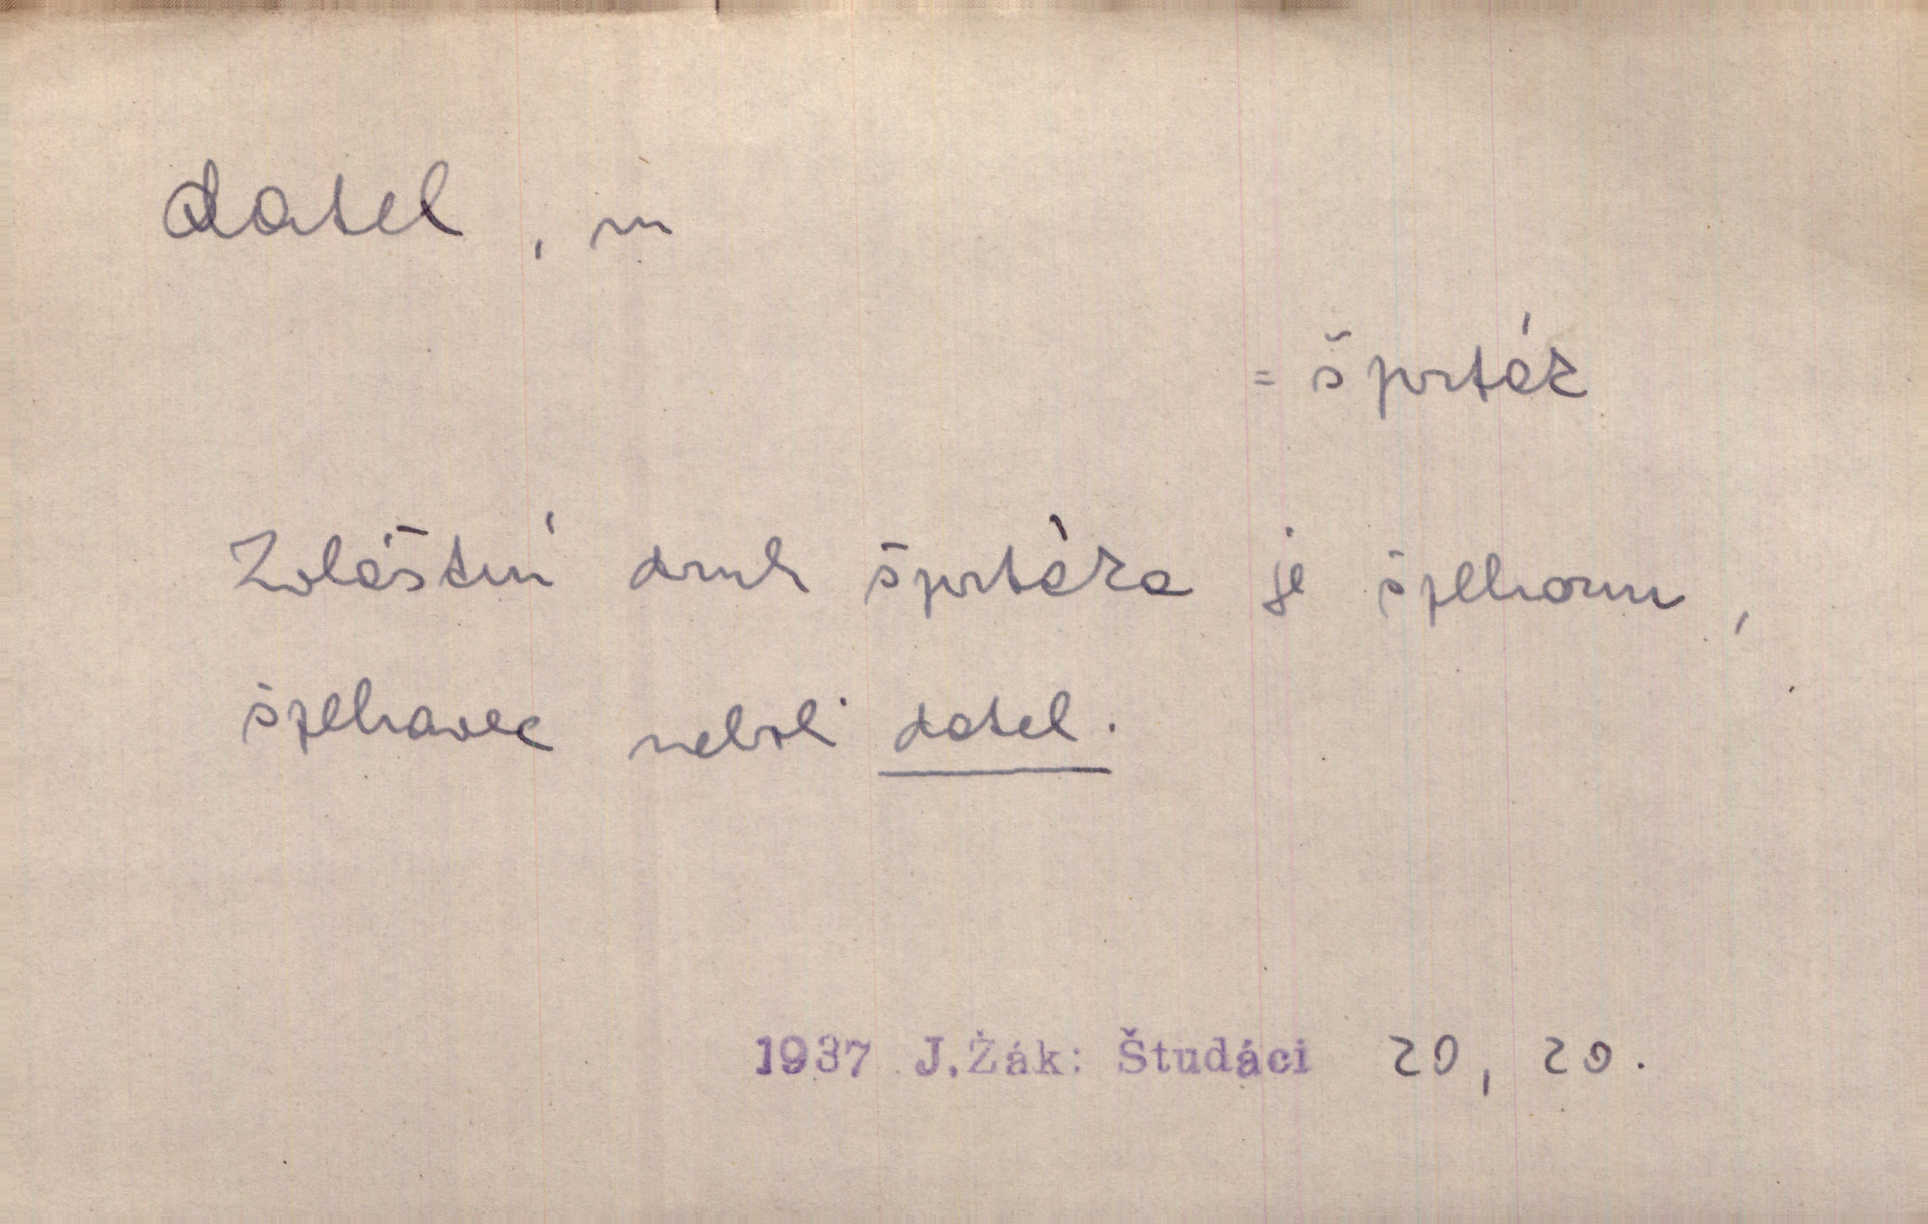 datel, m
= šprták
Zvláštní druh šprtáka je šplhoun,
šplhavec neboli datel.
1937 J.Žák: Študáci 20, 20.